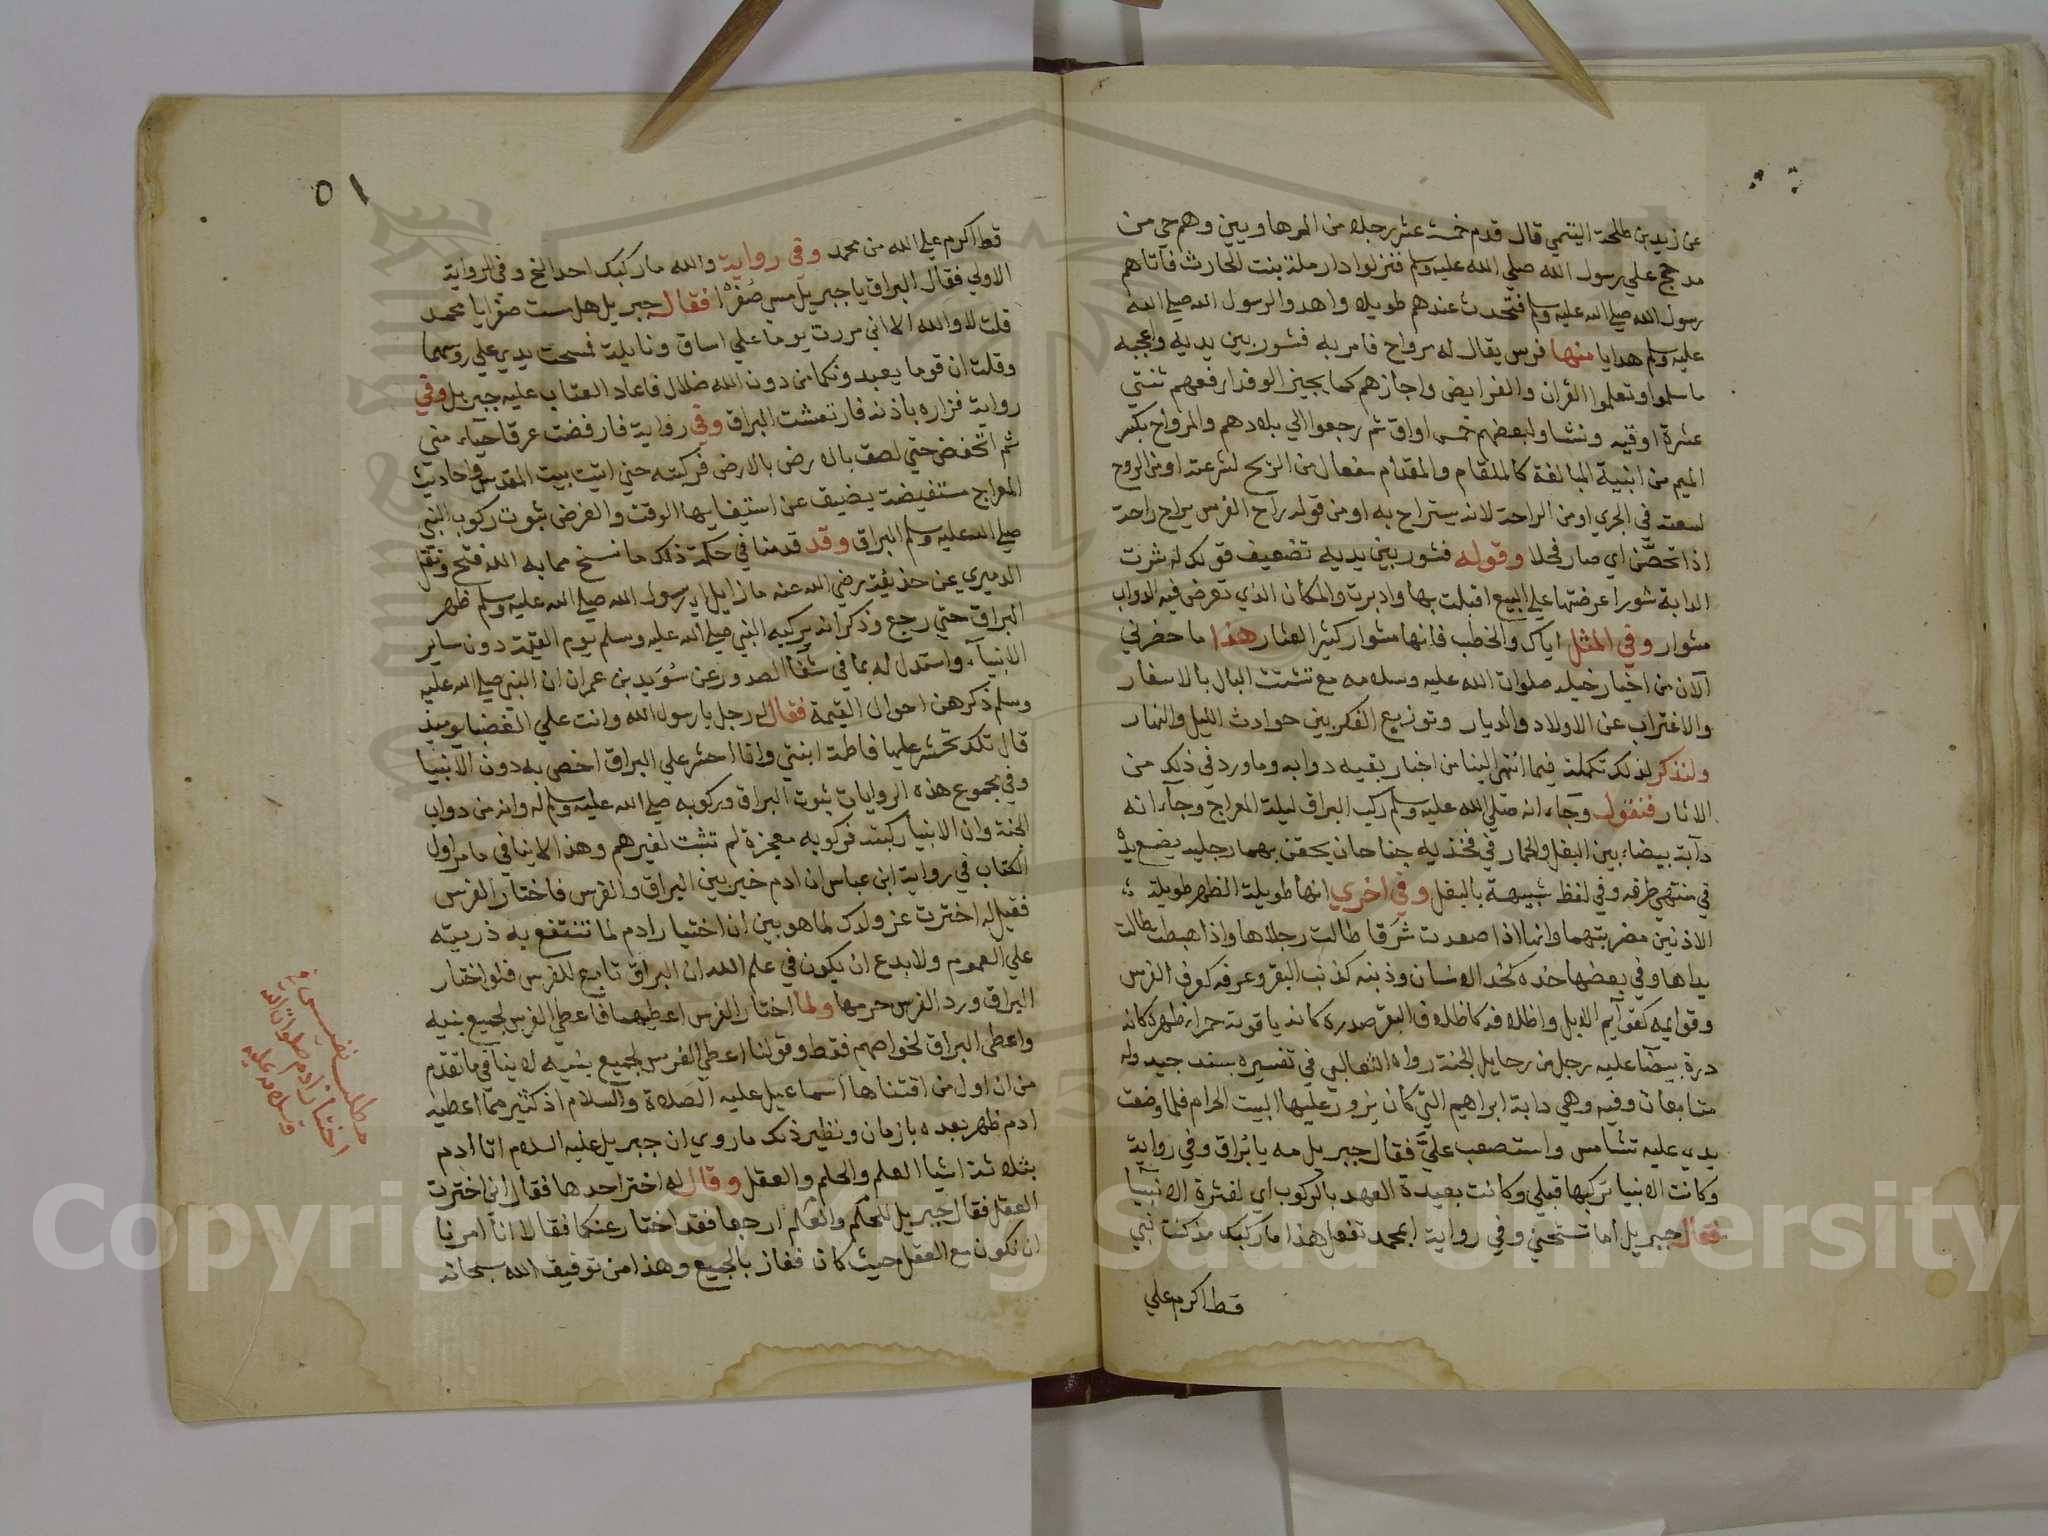 عن زيد بن طلحة التيمي قال قدم خمسة عشر رجلا من الرهاويين وهم حي من
مدحج علي رسول الله صلي الله عليه وسلم فنزلوا دار رملة بنت الحارث فاتاهم
رسول الله صلي الله عليه وسلم فتحدث عندهم طويلا واهدوا لرسول الله صلي الله
عليه وسلم هدايا منها فرس يقال له مرواح فامر به فشور بين يديه واعجبه
فاسلموا وتعلموا القران والفرايض واجازهم كما يجيز الوفد ارفعهم ثنتي
عشرة اوقيه ونشا ولبعضهم خمس اواق ثم رجعوا الي بلادهم والمرواح بكسر
الميم من ابنية المبالغة كالمقام والمقدام مفعال من الريح لسرعته او من الروح
لسعته في الجري او من الراحة لانه يستراح به او من قوله راح الفرس يراح راحة
اذا تحصن اي صار فحلا وقوله فشور بين يديه تضعيف قولك شرت
الدابة شورا عرضتها علي البيع اقبلت بها وادبرت والمكان الذي تعرض فيه الدواب
مشوار وفي المثل اياك والخطب فانها مشوار كثير العثار هذا ما حضرني
الان من اخبار خيله صلوات الله عليه وسلامه مع تشتت البال بالاسفار
والاغتراب عن الاولاد والديار وتوزيع الفكر بين حوادث الليل والنهار
ولنذكر لذلك تكملة فيما انتهي الينا من اخبار بقيه دوابه وما ورد في ذلك من
الاثار فنقول وجاء انه صلي الله عليه وسلم ركب البراق ليلة المعراج وجاء انه
دابة بيضاء بين البغل والحمار في فخذيه جناحان يحفز بهما رجليه يضع يده
في منتهي طرفه وفي لفظ شبيهة بالبغل وفي اخري انها طويلة الظهر طويلة
الاذنين مضربتهما وانها اذا صعدت شرفا طالت رجلاها واذا هبطت طالت
يداها وفي بعضها خده كخد الانسان وذنبه كذنب البقر وعرفه كعرف الفرس
وقوايمه كقوآيم الابل واظلافه كاظلاف البقر صدره كانه ياقوتة حمراء ظهره كانه
درة بيضآ عليه رجل من رحايل الجنة رواه الثعالبي في تفسيره بسند جيد وله
متابعات وفيه وهي دابة ابراهيم التي كان يزور عليها البيت الحرام فلما وضعت
يدي عليه تشامس واستصعب علي فقال جبريل مه يا براق وفي رواية
وكانت الانبيا تركبها قبلي وكانت بعيدة العهد بالركوب اي لفترة الانبيآ
فقال جبريل اما تستحي وفي رواية ابمحمد تفعل هذا ما ركبك مذ كنت نبي
قط اكرم علي
٥١
قط اكرم علي الله من محمد وفي رواية والله ما ركبك احد الخ وفي الرواية
الاولي فقال البراق يا جبريل مس صفرا فقال جبريل هل مست صفرا يا محمد
قلت لا والله الا اني مررت يوما علي اساق ونايلة فمسحت يدي علي روسهما
وقلت ان قوما يعبدونكما من دون الله ضلال فاعاد العتاب عليه جبريل وفي
رواية فزاره باذنه فارتعشت البراق وفي رواية فارفضت عرقا حياء مني
ثم انخفض حتي لصق بالارض بالارض فركبته حتي اتيت بيت المقدس واحاديث
المعراج مستفيضة يضيق عن استيفايها الوقت والغرض ثبوت ركوب النبي
صلي الله عليه وسلم البراق وقد قدمنا في حكمة ذلك ما نسخ مما به الله فتح ونقل
الدميري عن حذيفة رضي الله عنه ما زايل رسول الله صلي الله عليه وسلم ظهر
البراق حتي رجع وذكر انه يركبه النبي صلي الله عليه وسلم يوم القيمة دون ساير
الانبيآء واستدل له بما في شفآ الصدور عن سويد بن عمران ان النبي صلي الله عليه
وسلم ذكر من احوال القيمة فقال له رجل يا رسول الله وانت علي الغضبا يوميذ
قال تلك تحشر عليها فاطمة ابنتي وانا احشر علي البراق اخص به دون الانبيا
وفي مجموع هذه الروايات ثبوت البراق وركوبه صلي الله عليه وسلم له وانه من دواب
الجنة وان الانبيا ركبته فركوبه معجزة لم تثبت لغيرهم وهذا لا ينافي ما مر اول
الكتاب في رواية ابن عباس ان ادم خير بين البراق والفرس فاختار الفرس
فقيل له اخترت عز ولدك لما هو بين ان اختيار ادم لما تنتفع به ذريته
علي العموم ولا بدع ان يكون في علم الله ان البراق تابع للفرس فلو اختار
البراق ورد الفرس حرمها ولما اختار الفرس اعطيهما فاعطي الفرس لجميع بنيه
واعطي البراق لخواصهم فقط وقولنا اعطي الفرس لجميع بنيه لا ينافي ما تقدم
من ان اول من اقتناها اسماعيل عليه الصلاة والسلام اذ كثير مما اعطيه
ادم ظهر بعده بازمان ونظير ذلك ما روي ان جبريل عليه السلام اتا ادم
بثلاثة اشيا العلم والحلم والعقل وقال له اختر احدها فقال اني اخترت
العقل فقال جبريل للحلم والعلم ارجعا فقد اختار عنكما فقالا انا امرنا
ان نكون مع العقل حيث كان ففاز بالجميع وهذا من توفيق الله سبحانه
مطلب نفيس
اختيار ادم صلوات الله
وسلامه عليه